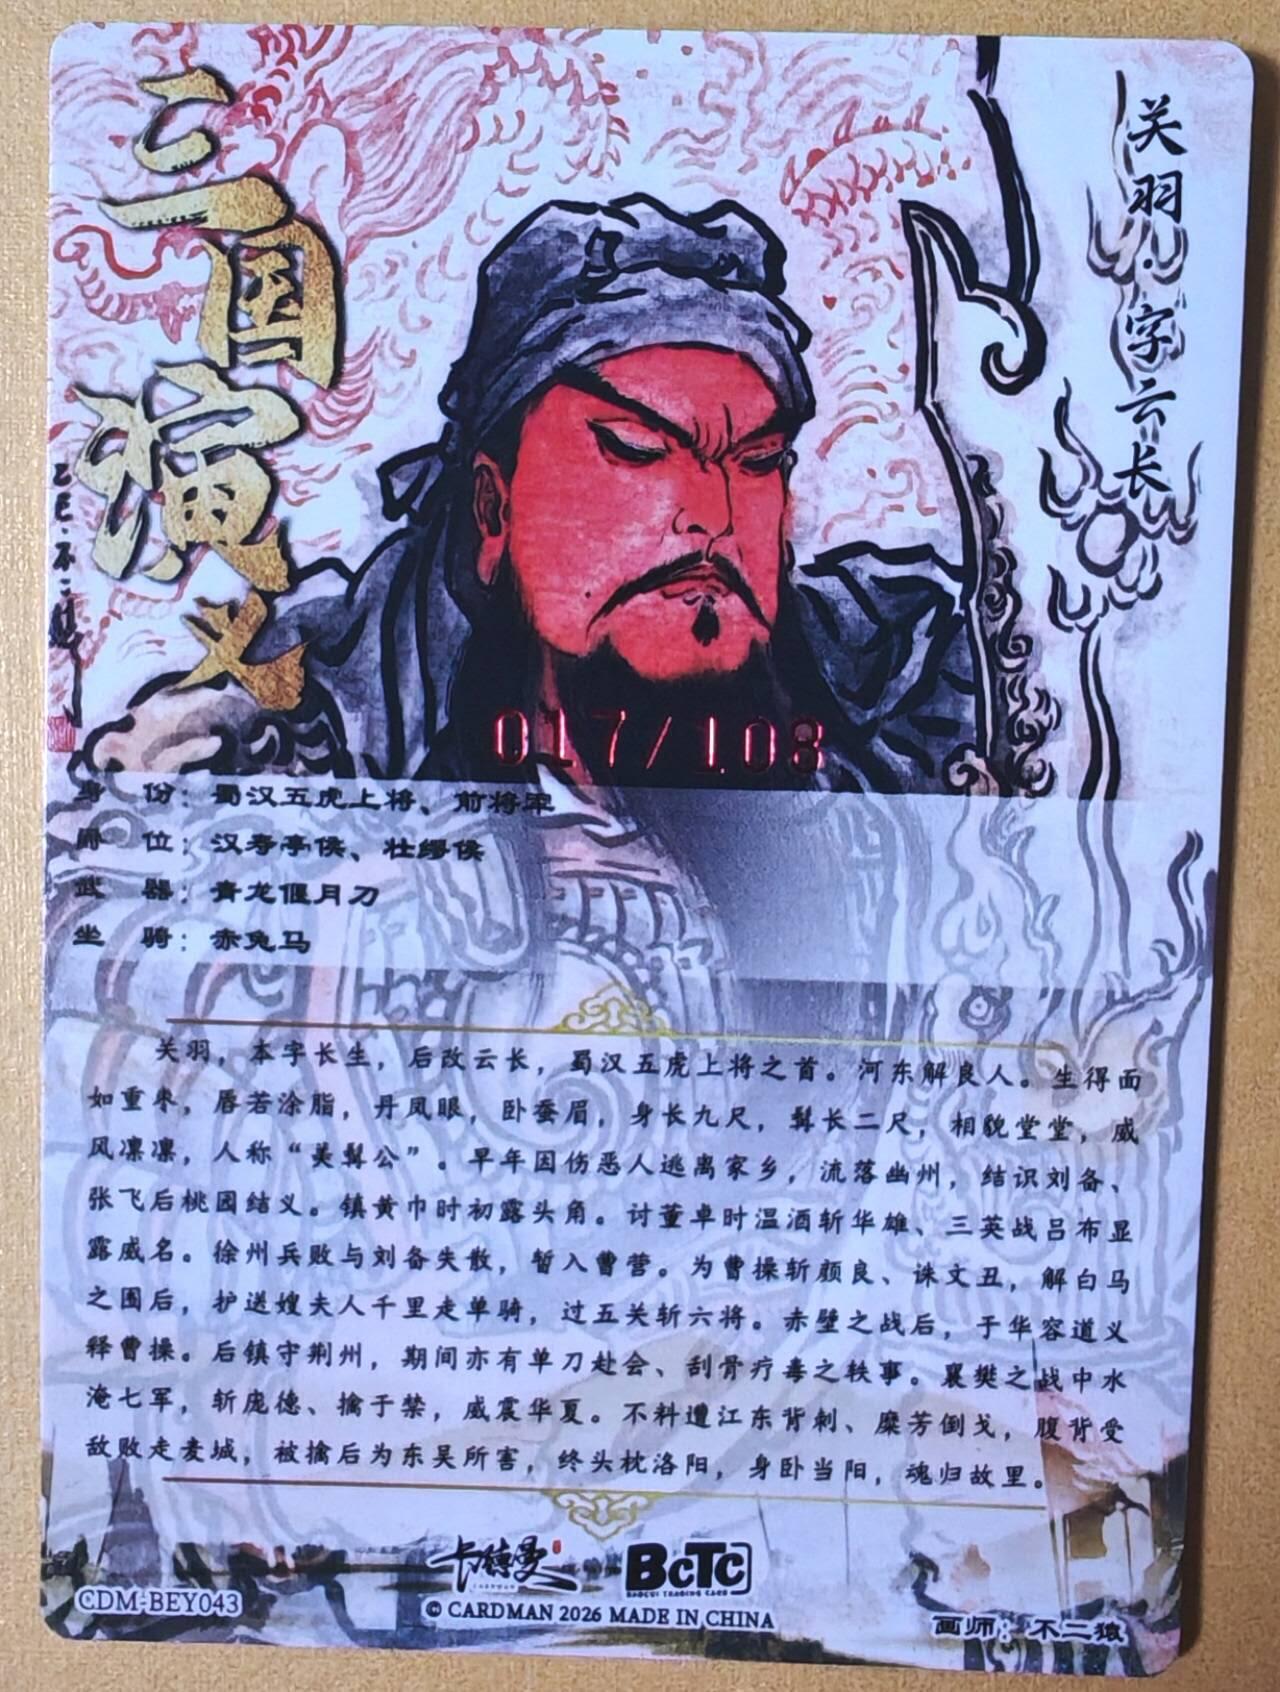 三国演义
关羽·字云长
乙巳·不二猿
017/108
身 份：蜀汉五虎上将、前将军
爵 位：汉寿亭侯、壮缪侯
武 器：青龙偃月刀
坐 骑：赤兔马
关羽，本字长生，后改云长，蜀汉五虎上将之首。河东解良人。生得面
如重枣，唇若涂脂，丹凤眼，卧蚕眉，身长九尺，髯长二尺，相貌堂堂，威
风凛凛，人称“美髯公”。早年因伤恶人逃离家乡，流落幽州，结识刘备、
张飞后桃园结义。镇黄巾时初露头角。讨董卓时温酒斩华雄、三英战吕布显
露威名。徐州兵败与刘备失散，暂入曹营。为曹操斩颜良、诛文丑，解白马
之围后，护送嫂夫人千里走单骑，过五关斩六将。赤壁之战后，于华容道义
释曹操。后镇守荆州，期间亦有单刀赴会、刮骨疗毒之轶事。襄樊之战中水
淹七军，斩庞德、擒于禁，威震华夏。不料遭江东背刺、糜芳倒戈，腹背受
敌败走麦城，被擒后为东吴所害，终头枕洛阳，身卧当阳，魂归故里。
卡德曼
CARDMAN
BCTC
BAOCUI TRADING CARD
CDM-BEY043
© CARDMAN 2026 MADE IN CHINA
画师：不二猿